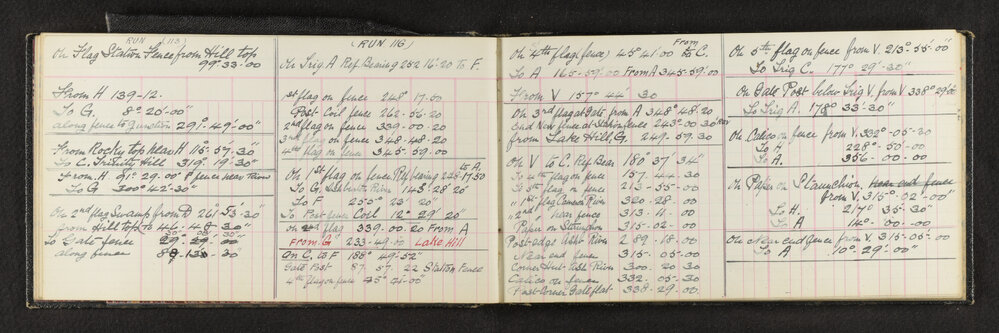 RUN (113)
On Flag Station Fence from Hill top
99.33.00
From H 139-12.
To G. 8°-20'-00"
along fence to Junction 291°-49'-00"
From Rocky top near A 115°-57'.30
To C. Hill 319°.19'.30"
From. H 91°-29.00" & fence near River
To G 300°-42'.30"
On 2nd flag Swamp from D 261°-53'-30"
from Hill top to 44.48.30
To Gate fence 29.29.00
along fence
(RUN 116)
On Trig A Ref. Bearing 252.16.20 to F
1st flag on fence 248°.17.00
Post Coil fence 262.56.20
2nd flag on fence 339.00.20
3rd flag on fence 348.48.20
4th flag on fence 345.59.00
to A.
On 1st flag on fence Ref bearing 248.17.50
To G, River 143°.28'.20"
To F 250°.23'.20"
To Post fence Coil 12°.29'.20"
on 2nd flag 339.00.20 From A
From G 233-49.00 Lake Hill
On C. to F 188° 49'-52"
Gate Post 87.57.22 Station Fence
4th flag on fence
On 4th (flag on fence) 45°-41'.00 From to C.
To A 165-59.00 From A 345-59.00
From V 157°44' 30
On 3rd flag at gate from A 348°48.20
End New fence at Station fence 243°.00.30
from Lake Hill, G. 249.59.30
On V to C. Ref. Bear 180°37'34"
To 4th flag on fence 157.44.30
To 5th flag on fence 213-55-00
" 1st flag Cameron River 320-28.00
" 2nd " near fence 313.11.00
Paper on 315-02-00
Post-edge River 289.18.00
Near end fence 315-05-00
Corner Hut River 300.20.30
Calico on fence 332.05-30
Post Corner Gate flat 338-29.00
On 5th flag on fence from V. 213°-55'-00"
To Trig C. 177°29'-30"
On Gate Post below Trig V. from V 338°29'00
To Trig A. 178° 33'.30"
On Calico on fence from V. 332°-05-30
To H 228°-50-00
To A. 356-00-00
On Paper on Staunchion, near end fence
from V. 315°-02"-00
To H. 217° 35'.30
To A 14°-00'-00
On Near end fence from V. 315-05'-00
To A 10°.29'.00"